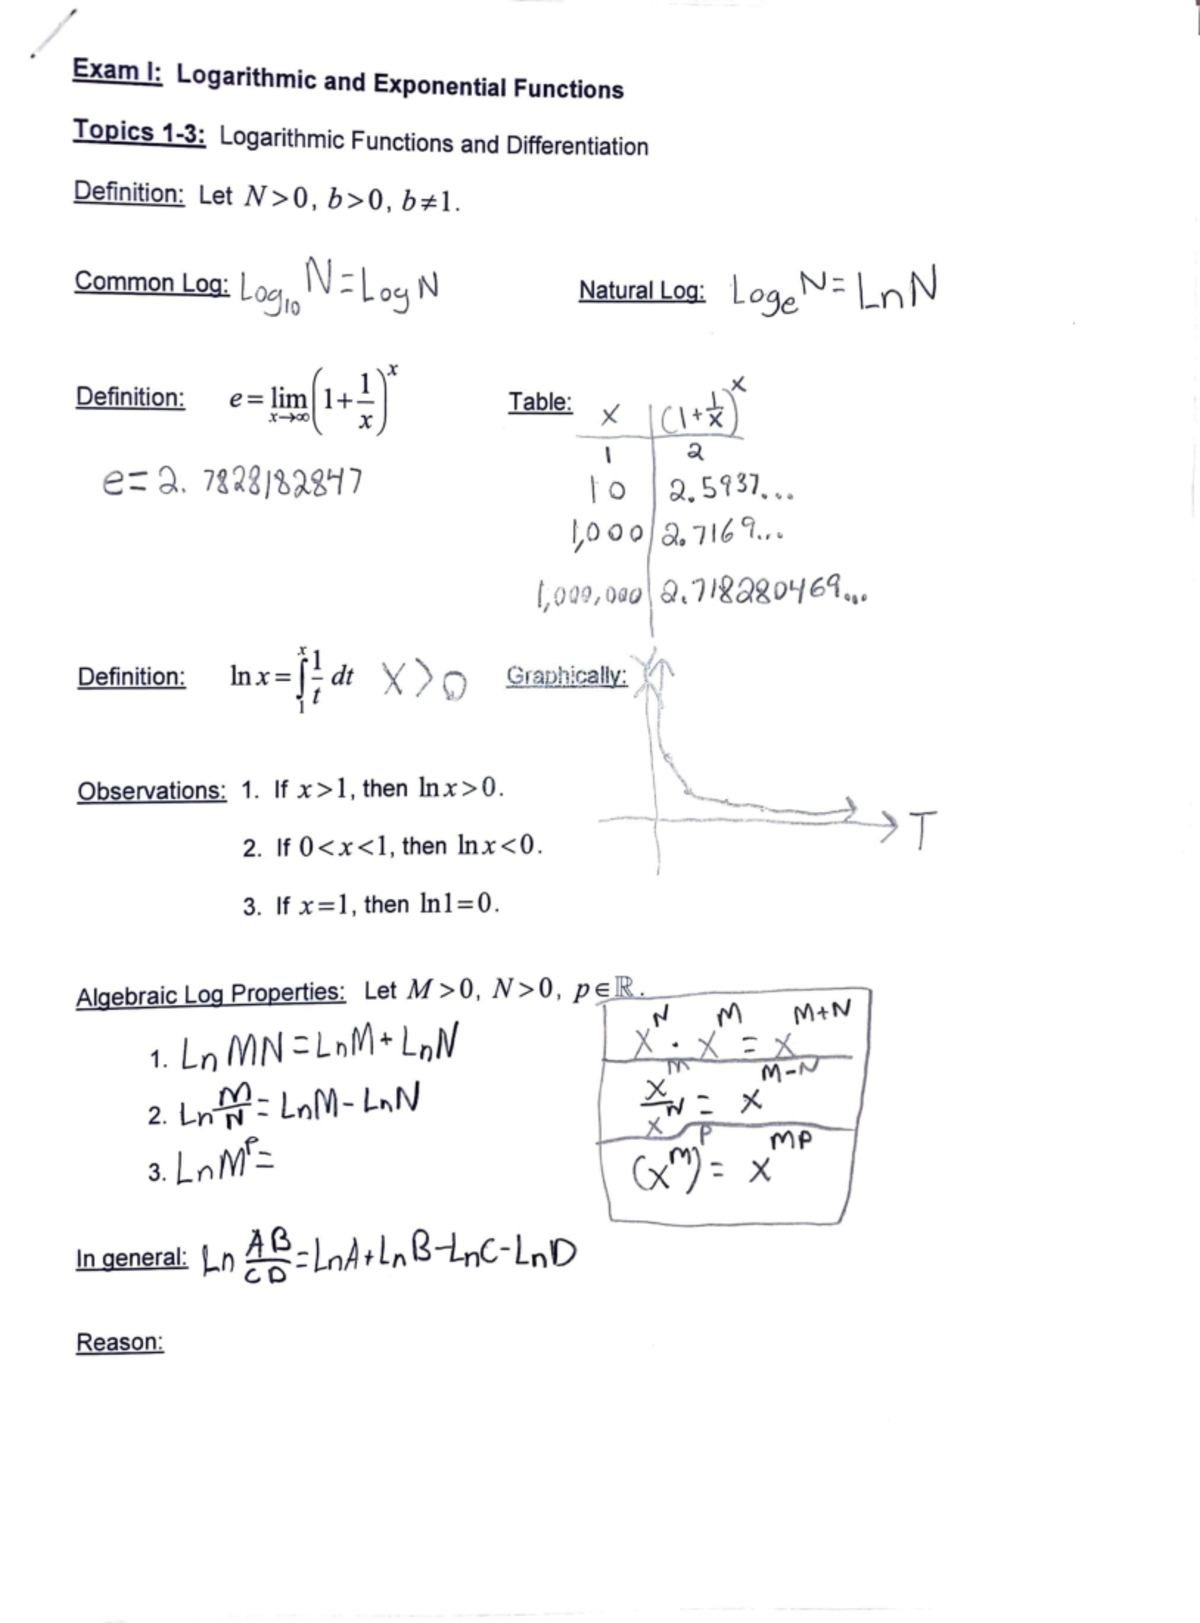 Exam I: Logarithmic and Exponential Functions
Topics 1-3: Logarithmic Functions and Differentiation
Definition: Let N>0, b>0, b≠1.
Common Log: Log₁₀ N = Log N Natural Log: Logₑ N = Ln N
Definition: e = lim x→∞ (1+1/x)^x Table: x | (1+1/x)^x
1 | 2
e = 2.7828182847 10 | 2.5937...
1,000 | 2.7169...
1,000,000 | 2.718280469...
Definition: ln x = ∫₁ˣ 1/t dt X>0 Graphically: Y
Observations: 1. If x>1, then ln x>0.
T
2. If 0<x<1, then ln x<0.
3. If x=1, then ln1=0.
Algebraic Log Properties: Let M>0, N>0, p∈ℝ.
1. Ln MN = LnM + LnN x^N · x^M = x^(M+N)
2. Ln M/N = LnM - LnN x^M/x^N = x^(M-N)
3. Ln M^P = (x^M)^P = x^(MP)
In general: Ln AB/CD = LnA+LnB-LnC-LnD
Reason: